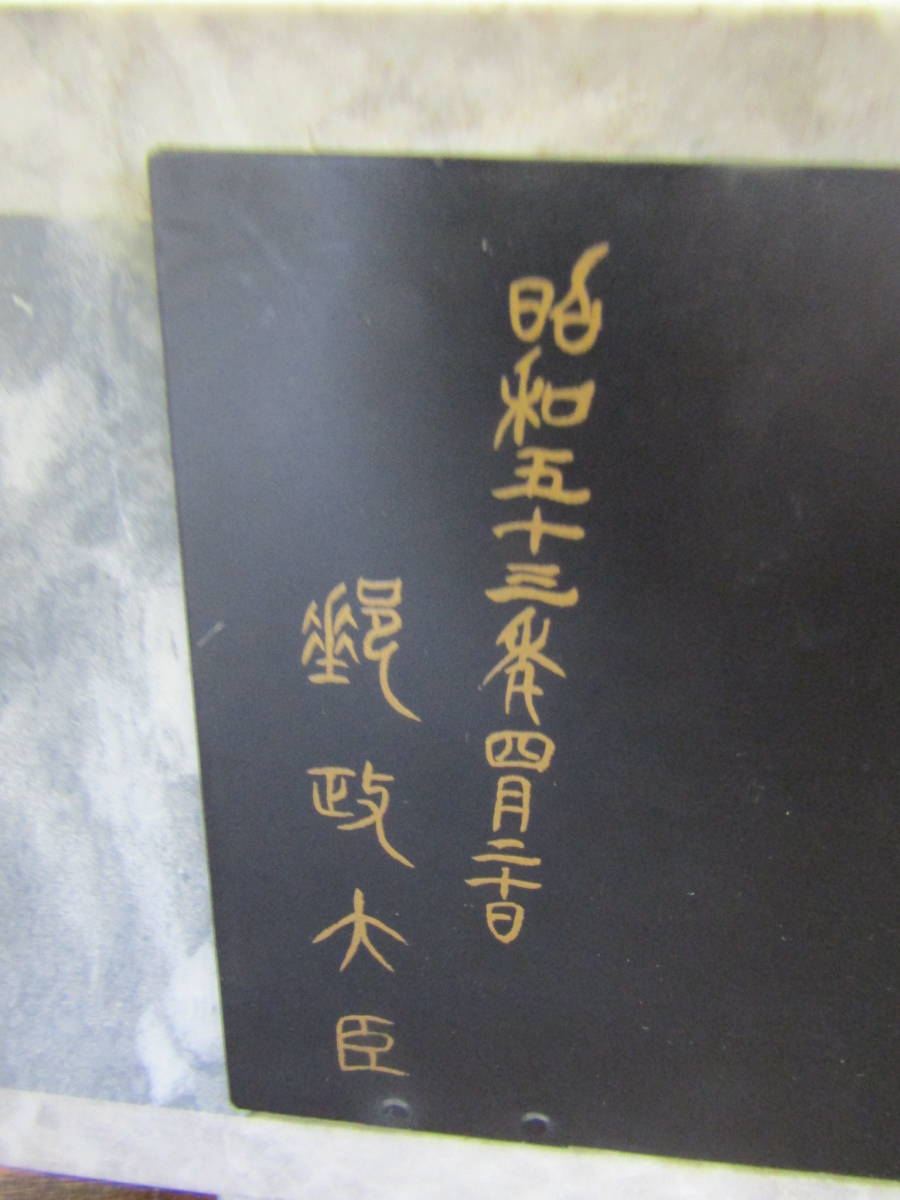 昭和五十三年四月二十日
郵政大臣